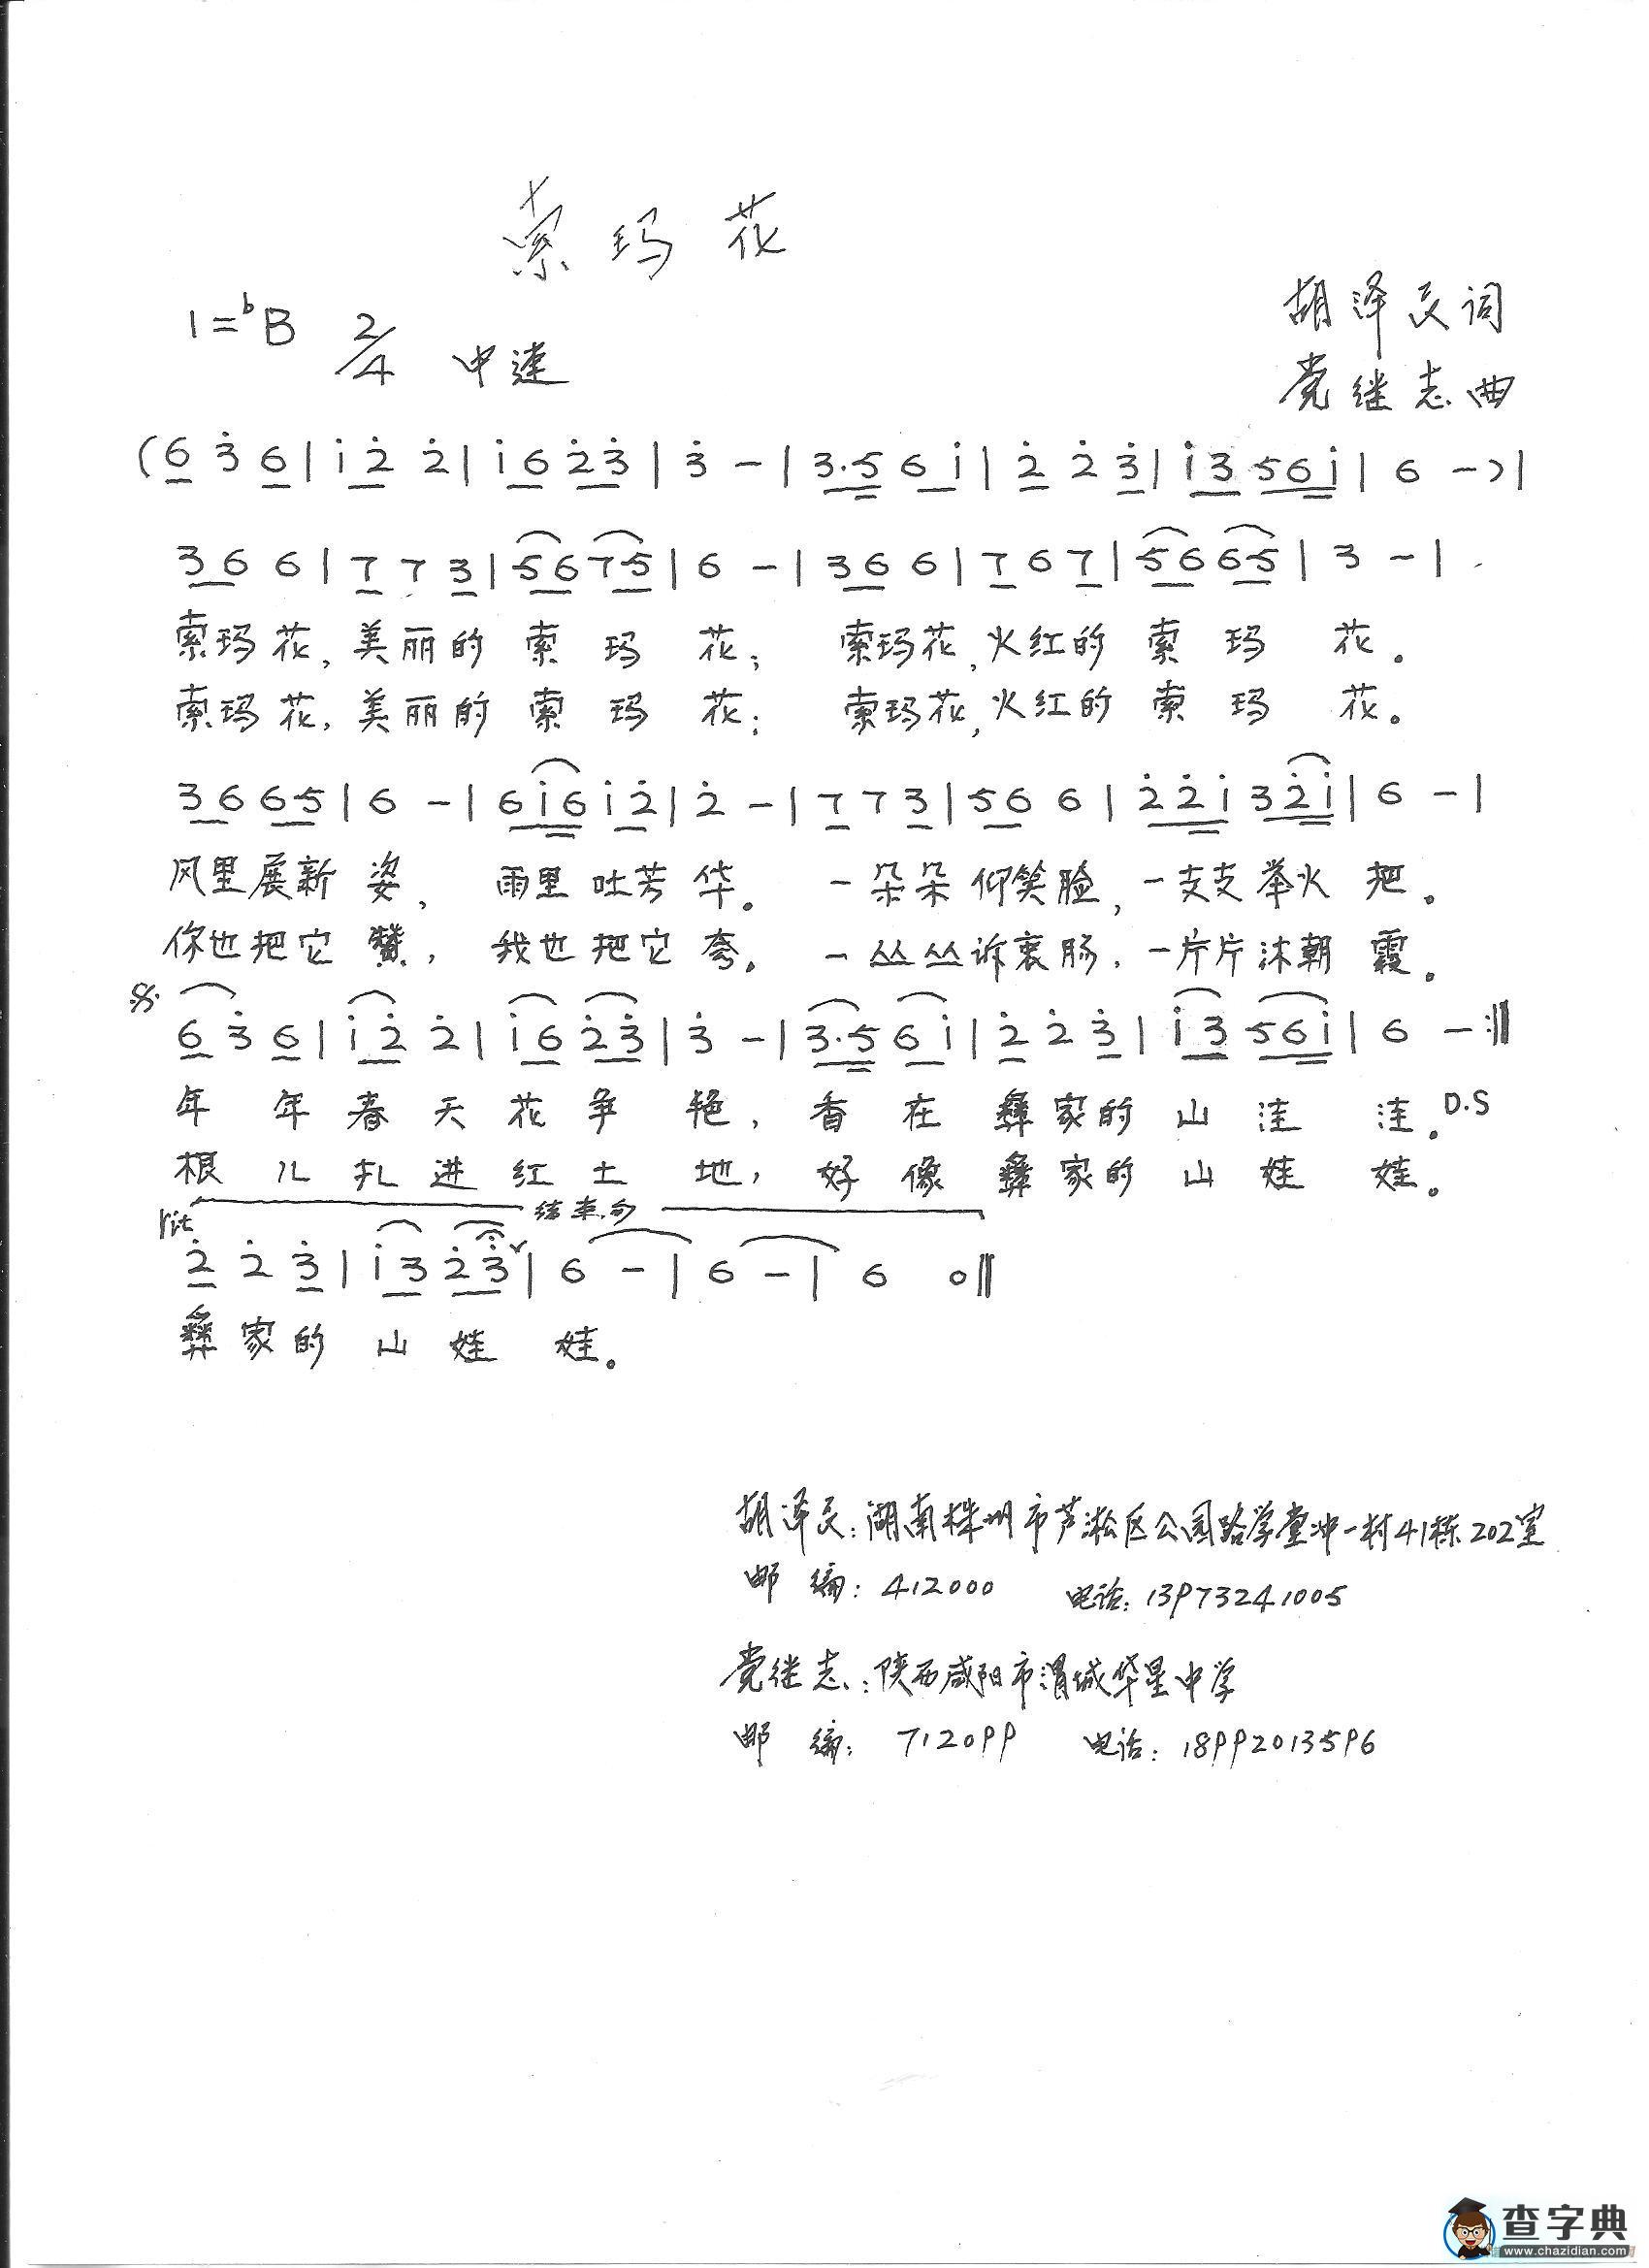 索玛花
1=♭B 2/4 中速
胡泽民词
党继志曲
(6 3̇ 6 | 1̇ 2̇ 2̇ | 1̇ 6 2̇ 3̇ | 3̇ - | 3·5 6 1̇ | 2̇ 2̇ 3̇ | 1̇ 3 5 6 1̇ | 6 -) |
3 6 6 | 7 7 3 | 5 6 7 5 | 6 - | 3 6 6 | 7 6 7 | 5 6 6 5 | 3 - |
索玛花,美丽的索玛花; 索玛花,火红的索玛花。
索玛花,美丽的索玛花; 索玛花,火红的索玛花。
3 6 6 5 | 6 - | 6 1̇ 6 1̇ 2̇ | 2̇ - | 7 7 3 | 5 6 6 | 2̇ 2̇ 1̇ 3 2̇ 1̇ | 6 - |
风里展新姿, 雨里吐芳华。 一朵朵仰笑脸,一支支举火把。
你也把它赞, 我也把它夸。 一丛丛诉衷肠,一片片沐朝霞。
𝄋 6 3̇ 6 | 1̇ 2̇ 2̇ | 1̇ 6 2̇ 3̇ | 3̇ - | 3·5 6 1̇ | 2̇ 2̇ 3̇ | 1̇ 3 5 6 1̇ | 6 - :‖
年年春天花争艳,香在彝家的山洼洼。D.S
根儿扎进红土地,好像彝家的山娃娃。
rit 结束句
2̇ 2̇ 3̇ | 1̇ 3 2̇ 3̇ | 6 - | 6 - | 6 0 ‖
彝家的山娃娃。
胡泽民:湖南株洲市芦淞区公园路学堂冲一村41栋202室
邮编:412000 电话:13973241005
党继志:陕西咸阳市渭城华星中学
邮编:712099 电话:18992013596
查字典
www.chazidian.com